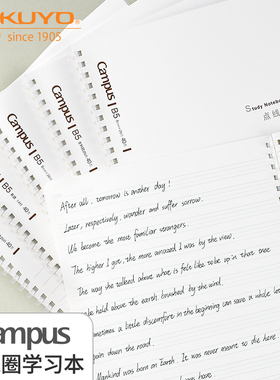 KOKUYO
since 1905
Campus B5
Campus B5
Campus B5
Study Notebook
点线
After all, tomorrow is another day!
Later, respectively, wander and suffer sorrow.
We become the most familiar strangers.
The higher I got, the more amazed I was by the view.
The way she talked about what is feels like to be up in that tree
held above the earth, brushed by the wind.
Sometimes a little discomfort in the beginning can save a whole
pain down the road.
Mankind was born on Earth. It was never meant to die here.
Campus
圈学习本